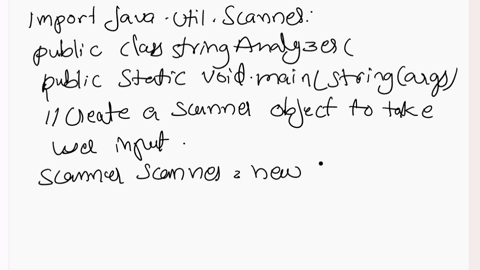 import Java.util.Scanner:
public class stringAnalyzer(
public static void.main(string(args)
//Create a scanner object to take
user input.
scanner scanner = new